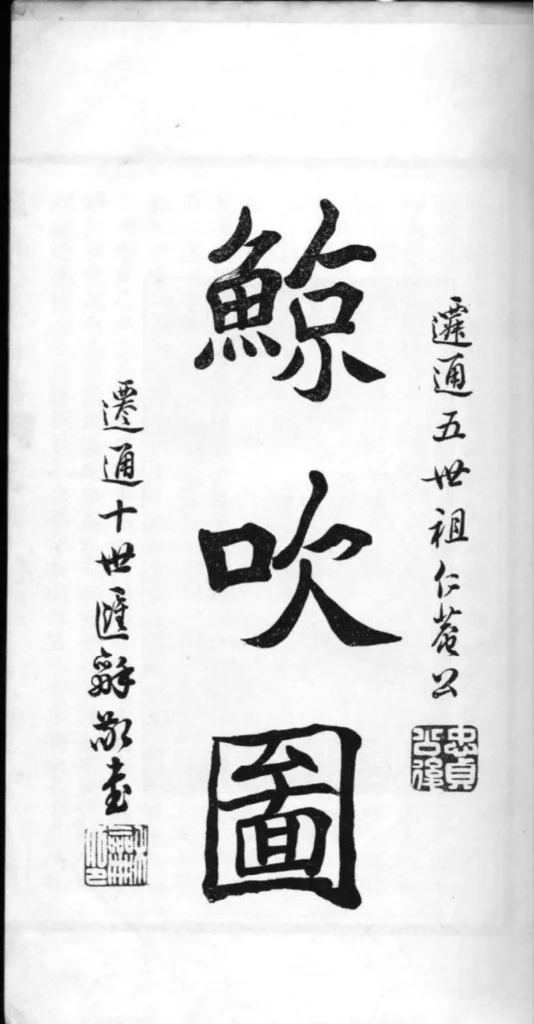 遷通五世祖仁菴公
忠貞公後
鯨吹圖
遷通十世匯辭敬書